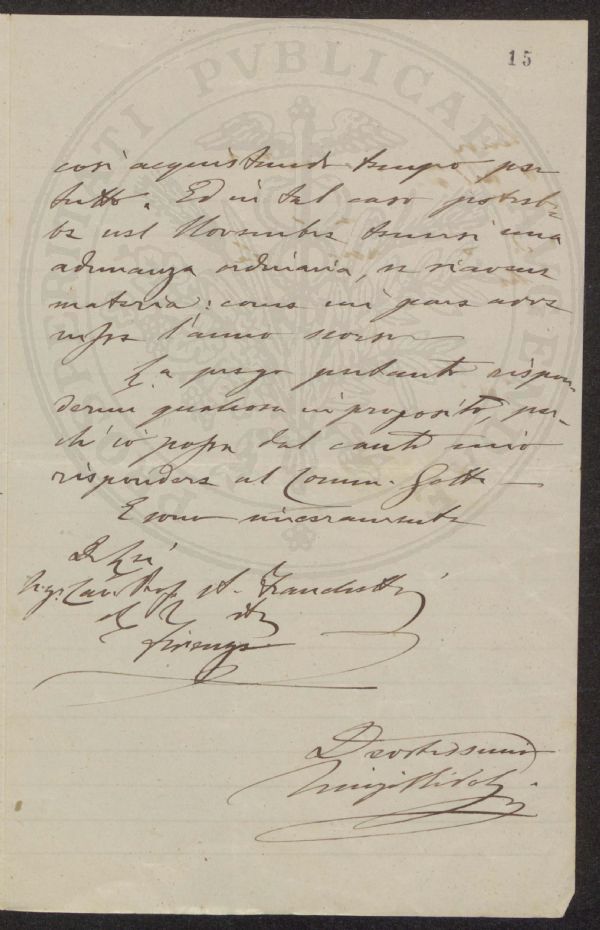 15
così acquistando tempo per
tutto. Ed in tal caso potreb-
be nel Novembre tenersi una
adunanza ordinaria, se vi avesse
materia: come mi pare aves
l'anno scorso
La prego pertanto rispon-
dermi qualcosa in proposito, per-
ch'io possa dal canto mio
rispondere al Comm. Gotti —
E sono sinceramente
Di Lei
Sig. Cav. Prof. A. Franchetti
Firenze
Devotissimo
Luigi Ridolfi